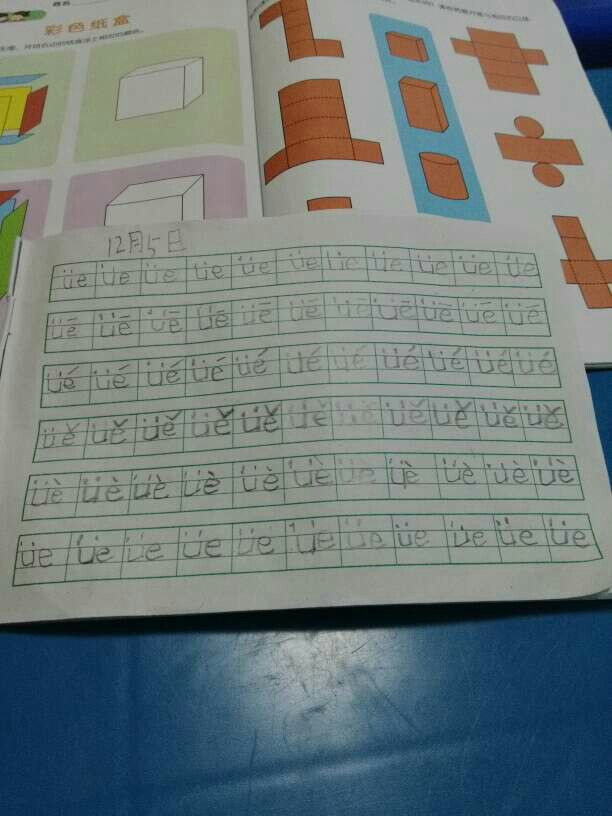 姓名
彩色纸盒
12月5日
üe üe üe üe üe üe üe üe üe üe üe
üē üē üē üē üē üē üē üē üē üē üē
üé üé üé üé üé üé üé üé üé üé üé
üě üě üě üě üě üě üě üě üě üě üě
üè üè üè üè üè üè üè üè üè üè üè
üe üe üe üe üe üe üe üe üe üe üe